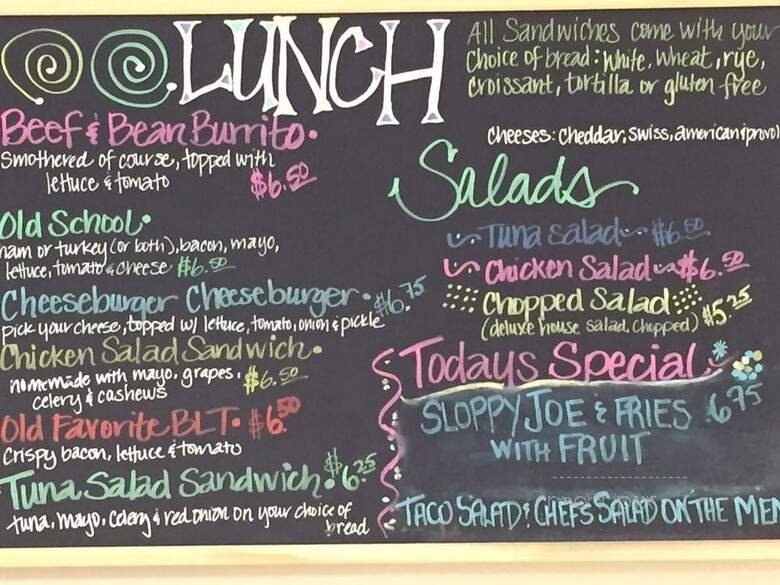 LUNCH
All Sandwiches come with your
choice of bread: white, wheat, rye,
croissant, tortilla or gluten free
cheeses: cheddar, swiss, american & provol
Beef & Bean Burrito.
Smothered of course, topped with
lettuce & tomato
$6.50
Old School.
ham or turkey (or both), bacon, mayo,
lettuce, tomato & cheese $6.50
Cheeseburger Cheeseburger. $6.75
pick your cheese, topped w/ lettuce, tomato, onion & pickle
Chicken Salad Sandwich.
homemade with mayo, grapes, $6.50
celery & cashews
Old Favorite BLT. $6.50
Crispy bacon, lettuce & tomato
Tuna Salad Sandwich. $6.25
tuna, mayo, celery & red onion on your choice of
bread
Salads
Tuna Salad $6.50
Chicken Salad $6.50
Chopped Salad $5.25
(deluxe house salad, chopped)
Todays Special
SLOPPY JOE & FRIES 6.75
WITH FRUIT
TACO SALAD & CHEFS SALAD ON THE MEN